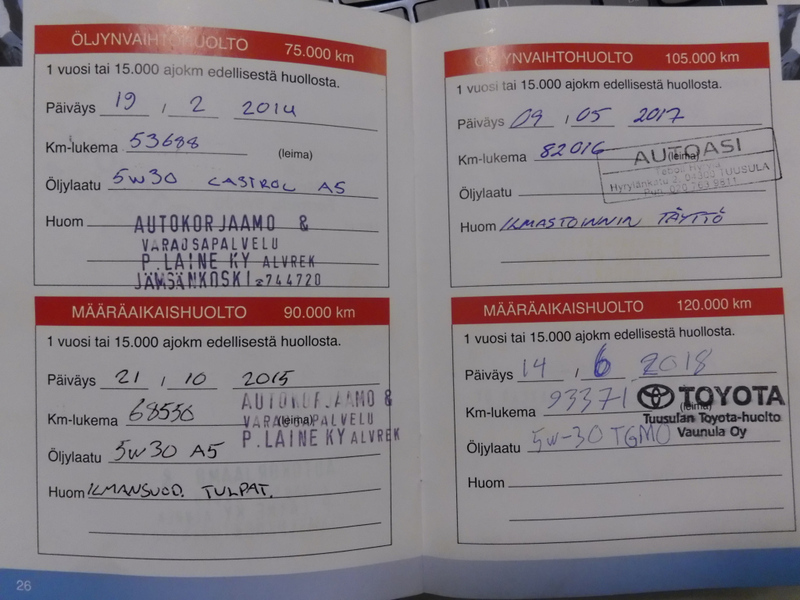 ÖLJYNVAIHTOHUOLTO 75.000 km
1 vuosi tai 15.000 ajokm edellisestä huollosta.
Päiväys 19 / 2 2014
Km-lukema 53688 (leima)
Öljylaatu 5W30 CASTROL A5
Huom
AUTOKORJAAMO &
VARAOSAPALVELU
P. LAINE KY ALVREK
JÄMSÄNKOSKI 744720
MÄÄRÄAIKAISHUOLTO 90.000 km
1 vuosi tai 15.000 ajokm edellisestä huollosta.
Päiväys 21 / 10 2015
Km-lukema 68550 (leima)
AUTOKORJAAMO &
VARAOSAPALVELU
P. LAINE KY ALVREK
Öljylaatu 5W30 A5
Huom ILMANSUOD. TULPAT.
26
ÖLJYNVAIHTOHUOLTO 105.000 km
1 vuosi tai 15.000 ajokm edellisestä huollosta.
Päiväys 09 / 05 2017
Km-lukema 82016 (leima)
AUTOASI
Hyrylänkatu 2, 04300 TUUSULA
Öljylaatu
Huom ILMASTOINNIN TÄYTTÖ
MÄÄRÄAIKAISHUOLTO 120.000 km
1 vuosi tai 15.000 ajokm edellisestä huollosta.
Päiväys 14 / 6 2018
Km-lukema 93371 (leima)
TOYOTA
Tuusulan Toyota-huolto
Vaunula Oy
Öljylaatu 5W-30 TGMO
Huom